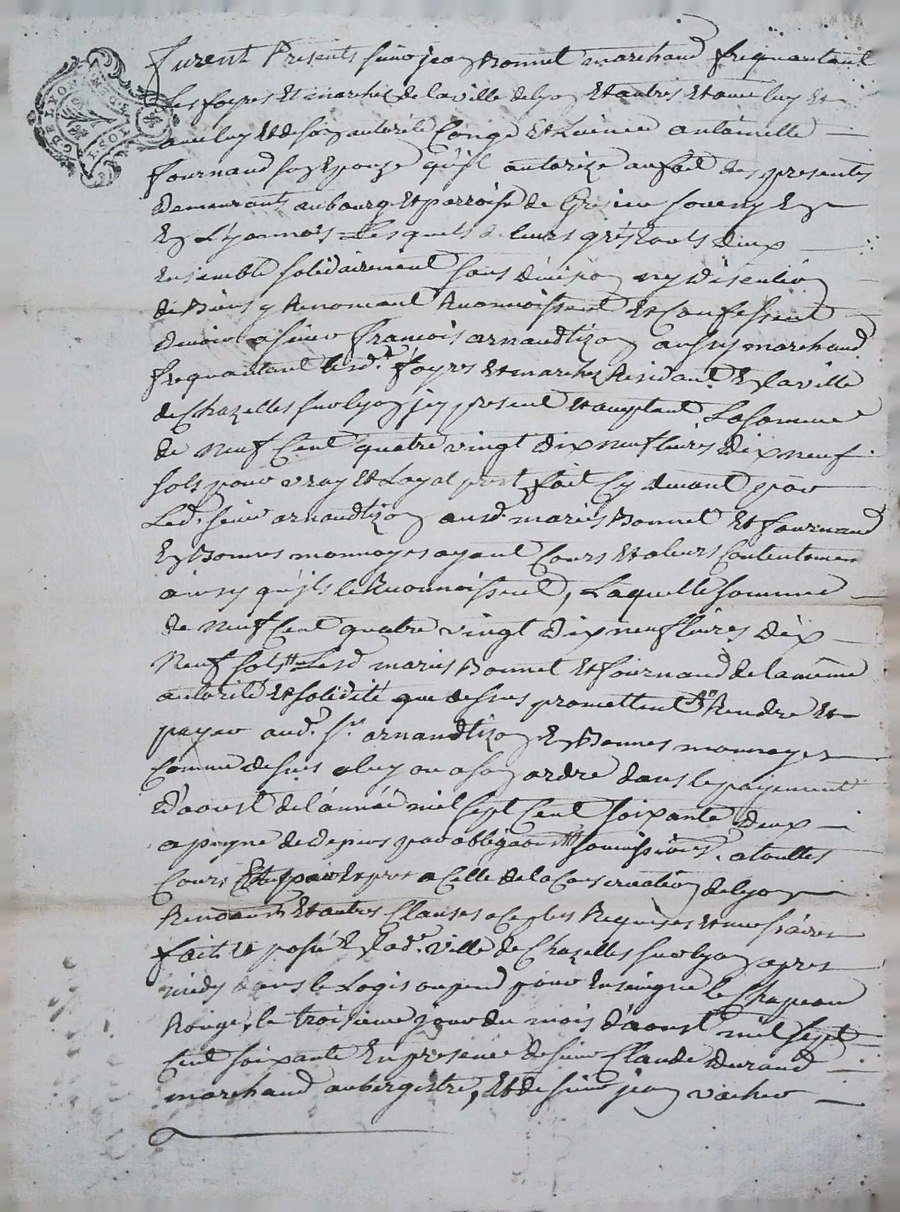 G. DE LYON
1. SOL
Furent Presents sieur jean Bonnet marchand frequantant
Les foyres Et marchés de la ville de lyon Et autres Et avec luy Et
avec luy Et de son autorité Congé Et Licence antoinette
fournand son Epouze qu'jl autorize au fait des presentes
Demeurants au bourg Et parroisse de Grésieu
En Lÿonnois Lesquels de leurs grés touts deux
Ensemble solidairement sans division ny discution
de Biens y Renonçant Reconnoissent Et Confessent
devoir a sieur françois arnaudtizon aussy marchand
frequantant lesd. foyres Et marchés Residant En la ville
de Chazelles sur lyon jcy present Et aceptant La somme
de neuf Cent quatre vingt dix neuf livres dix neuf
sols pour vray Et Loyal prest fait cy devant par
Led. sieur arnaudtizon ausd. mariés Bonnet Et fournand
En Bonnes monnoyes ayant Cours Et a leurs Contentement
ainsy qu'jls le Reconnoissent, Laquelle somme
de neuf Cent quatre vingt dix neuf livres dix
neuf sols Lesd. mariés Bonnet Et fournand de la même
autorité Et solidité que dessus promettent Rendre Et
payer aud. sr. arnaudtizon En Bonnes monnoyes
Comme dessus a luy ou a son ordre dans le payement
d'aoust de l'année mil sept Cent soixante deux
a peyne de depens par obligaon soumissions a touttes
Cours Et par Exprès a Celle de la Conservation de lyon
Renonçant Et autres Clauses a Ce plus Requises Et necessaires
fait Et passé En lad. ville de Chazelles sur lyon apres
midy dans le Logis ou pend pour Enseigne le Chapeau
Rouge, le troisieme jour du mois d'aoust mil sept
Cent soixante En presence de sieur Claude Durand
marchand aubergiste, Et de sieur jean vacher